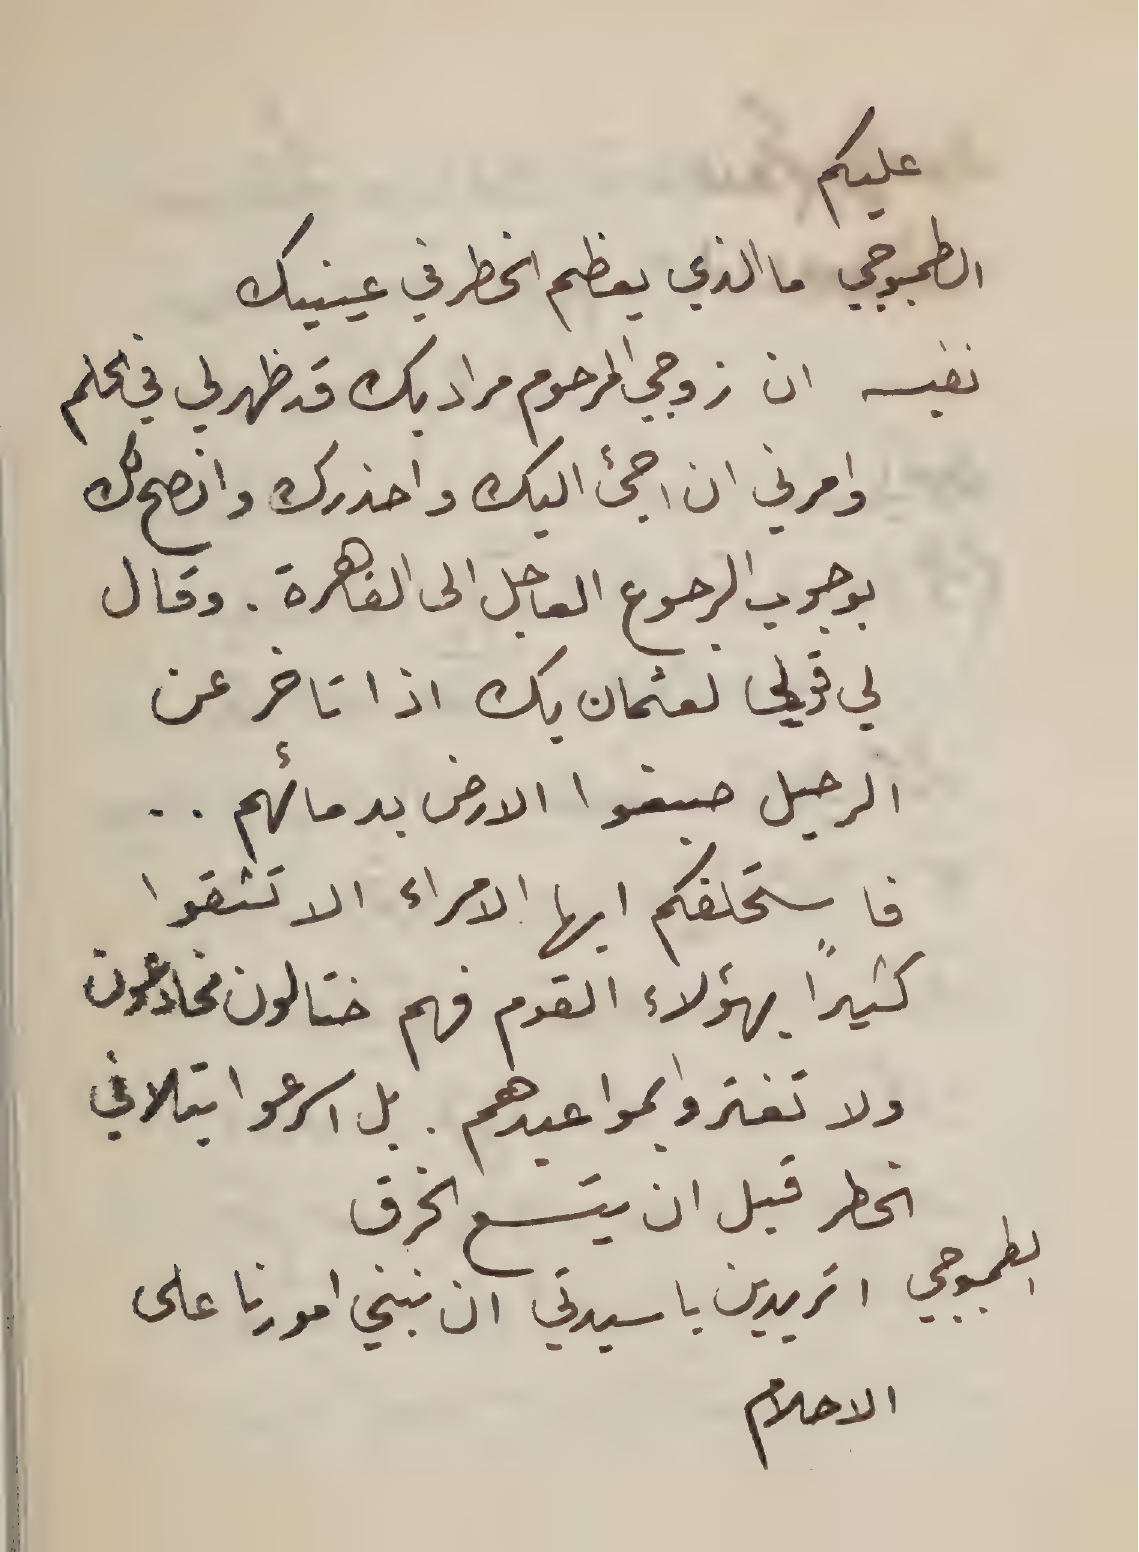 عليكم
الطمبوجي ما الذي يعظم الخطر في عينيك
نفيسه ان زوجي المرحوم مراد بك قد ظهر لي في الحلم
وامرني ان اجئ اليك واحذرك وانصح لك
بوجوب الرجوع العاجل الى القاهرة . وقال
لي قولي لعثمان بك اذا تاخر عن
الرحيل صبغوا الارض بدمائهم . .
فاستحلفكم ايها الامراء الا تثقوا
كثيراً بهؤلاء القوم فهم ختالون مخادعون
ولا تغتروا بمواعيدهم . بل اسرعوا بتلافي
الخطر قبل ان يتسع الخرق
الطمبوجي اتريدين يا سيدتي ان نبني امورنا على
الاحلام